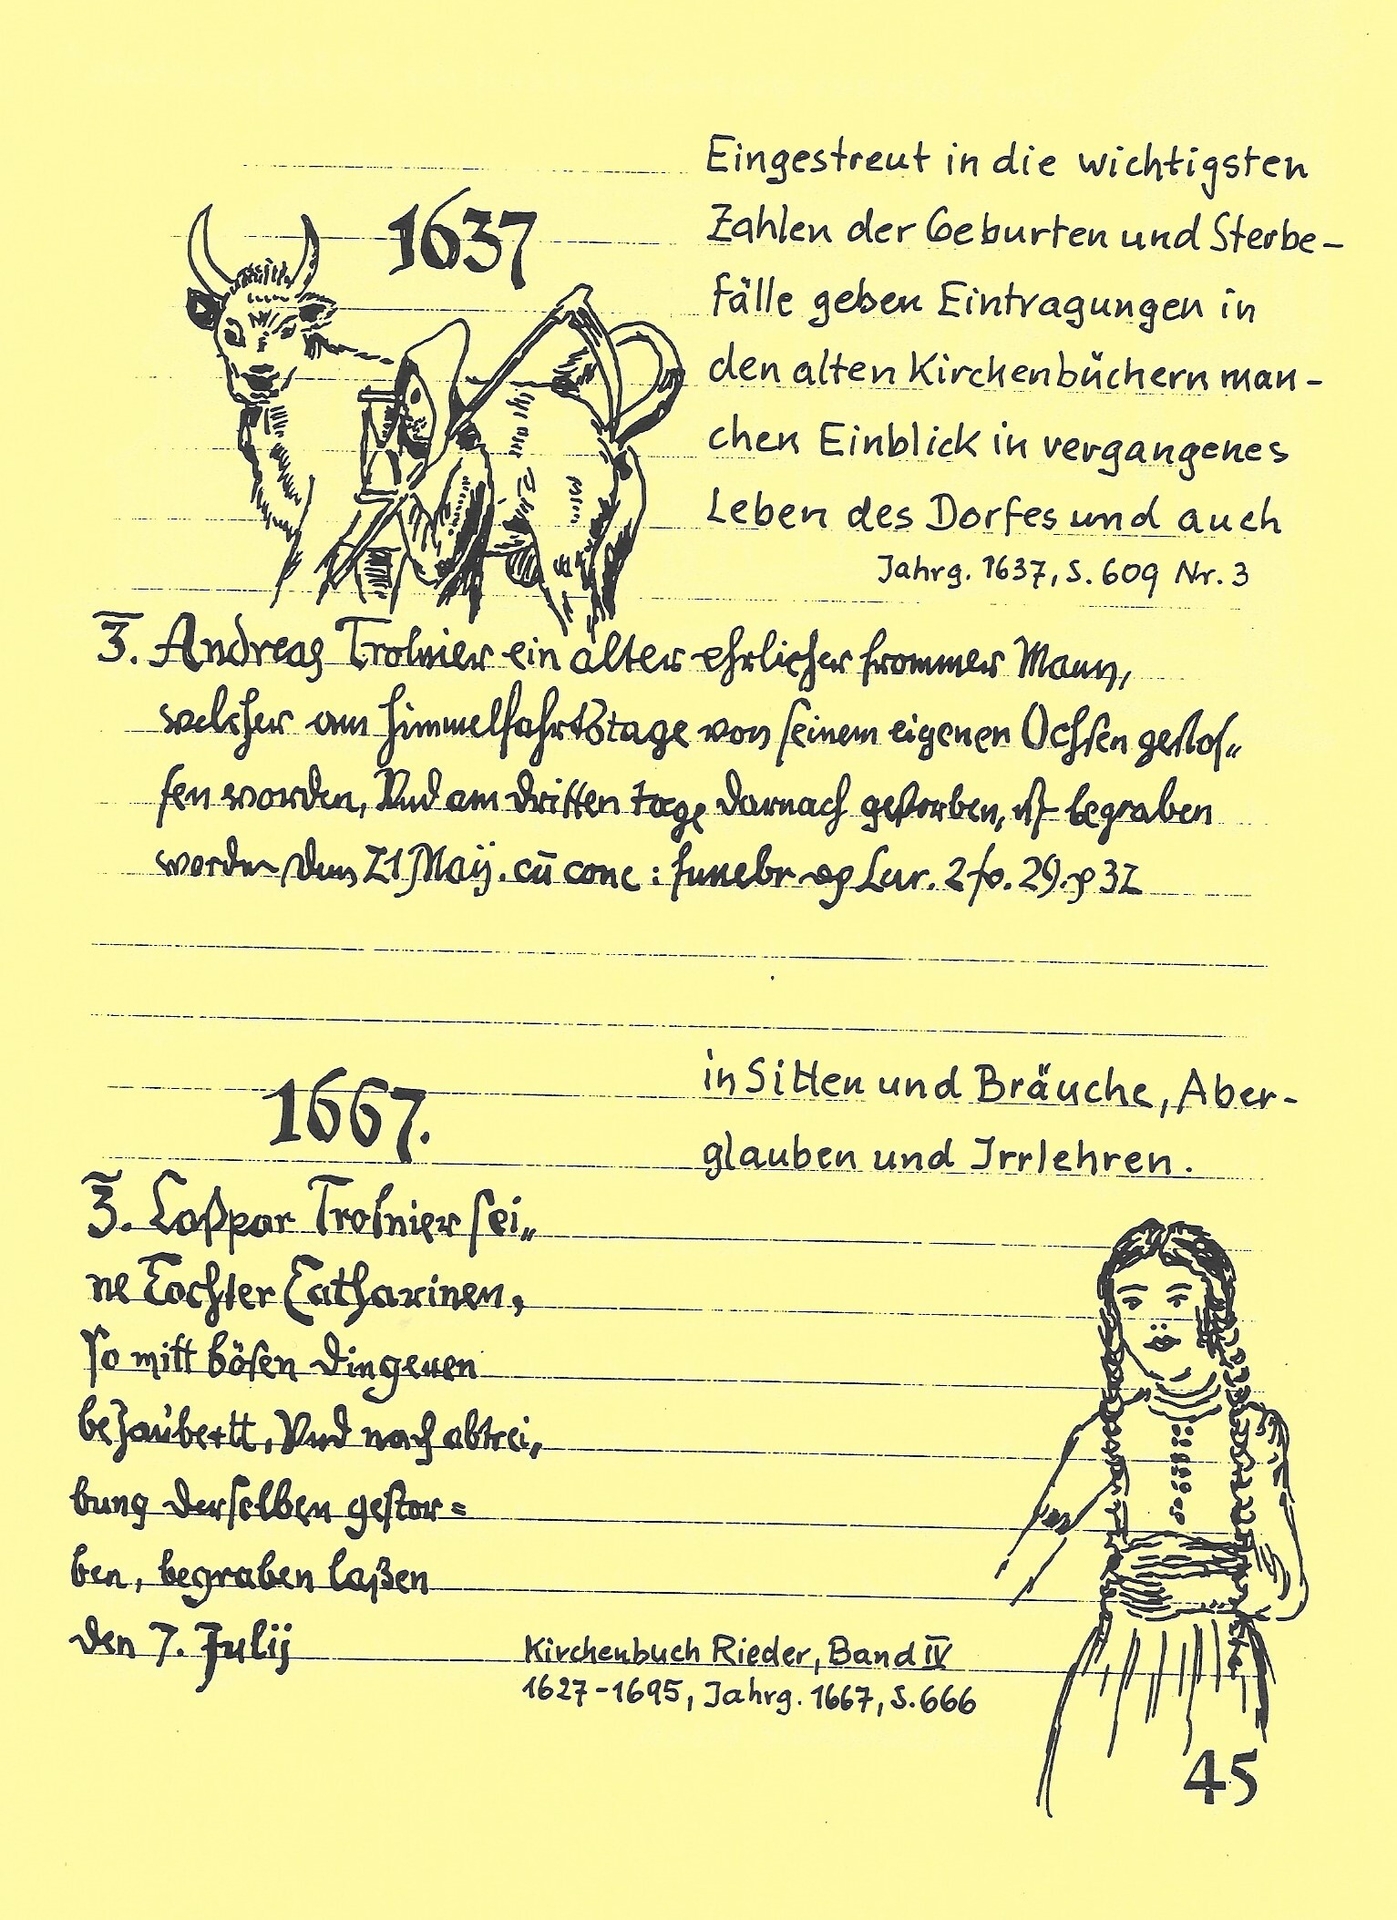 1637
Eingestreut in die wichtigsten
Zahlen der Geburten und Sterbe-
fälle geben Eintragungen in
den alten Kirchenbüchern man-
chen Einblick in vergangenes
Leben des Dorfes und auch
Jahrg. 1637, S. 609 Nr. 3
3. Andreas Trolnier ein alter ehrlicher frommer Mann,
welcher am himmelfahrtstage von seinem eigenen Ochsen gestos„
sen worden, Vnd am dritten tage darnach gestorben, ist begraben
worden den 21 Maij. cū conc: funebr Luc. 2 29. 32
in Sitten und Bräuche, Aber-
glauben und Irrlehren.
1667.
3. Caßpar Trolnier sei„
ne Tochter Catharinen,
so mitt bösen dingeren
bezaubertt, Vnd nach abtrei„
bung derselben gestor=
ben, begraben laßen
den 7. Julij
Kirchenbuch Rieder, Band IV
1627-1695, Jahrg. 1667, S. 666
45